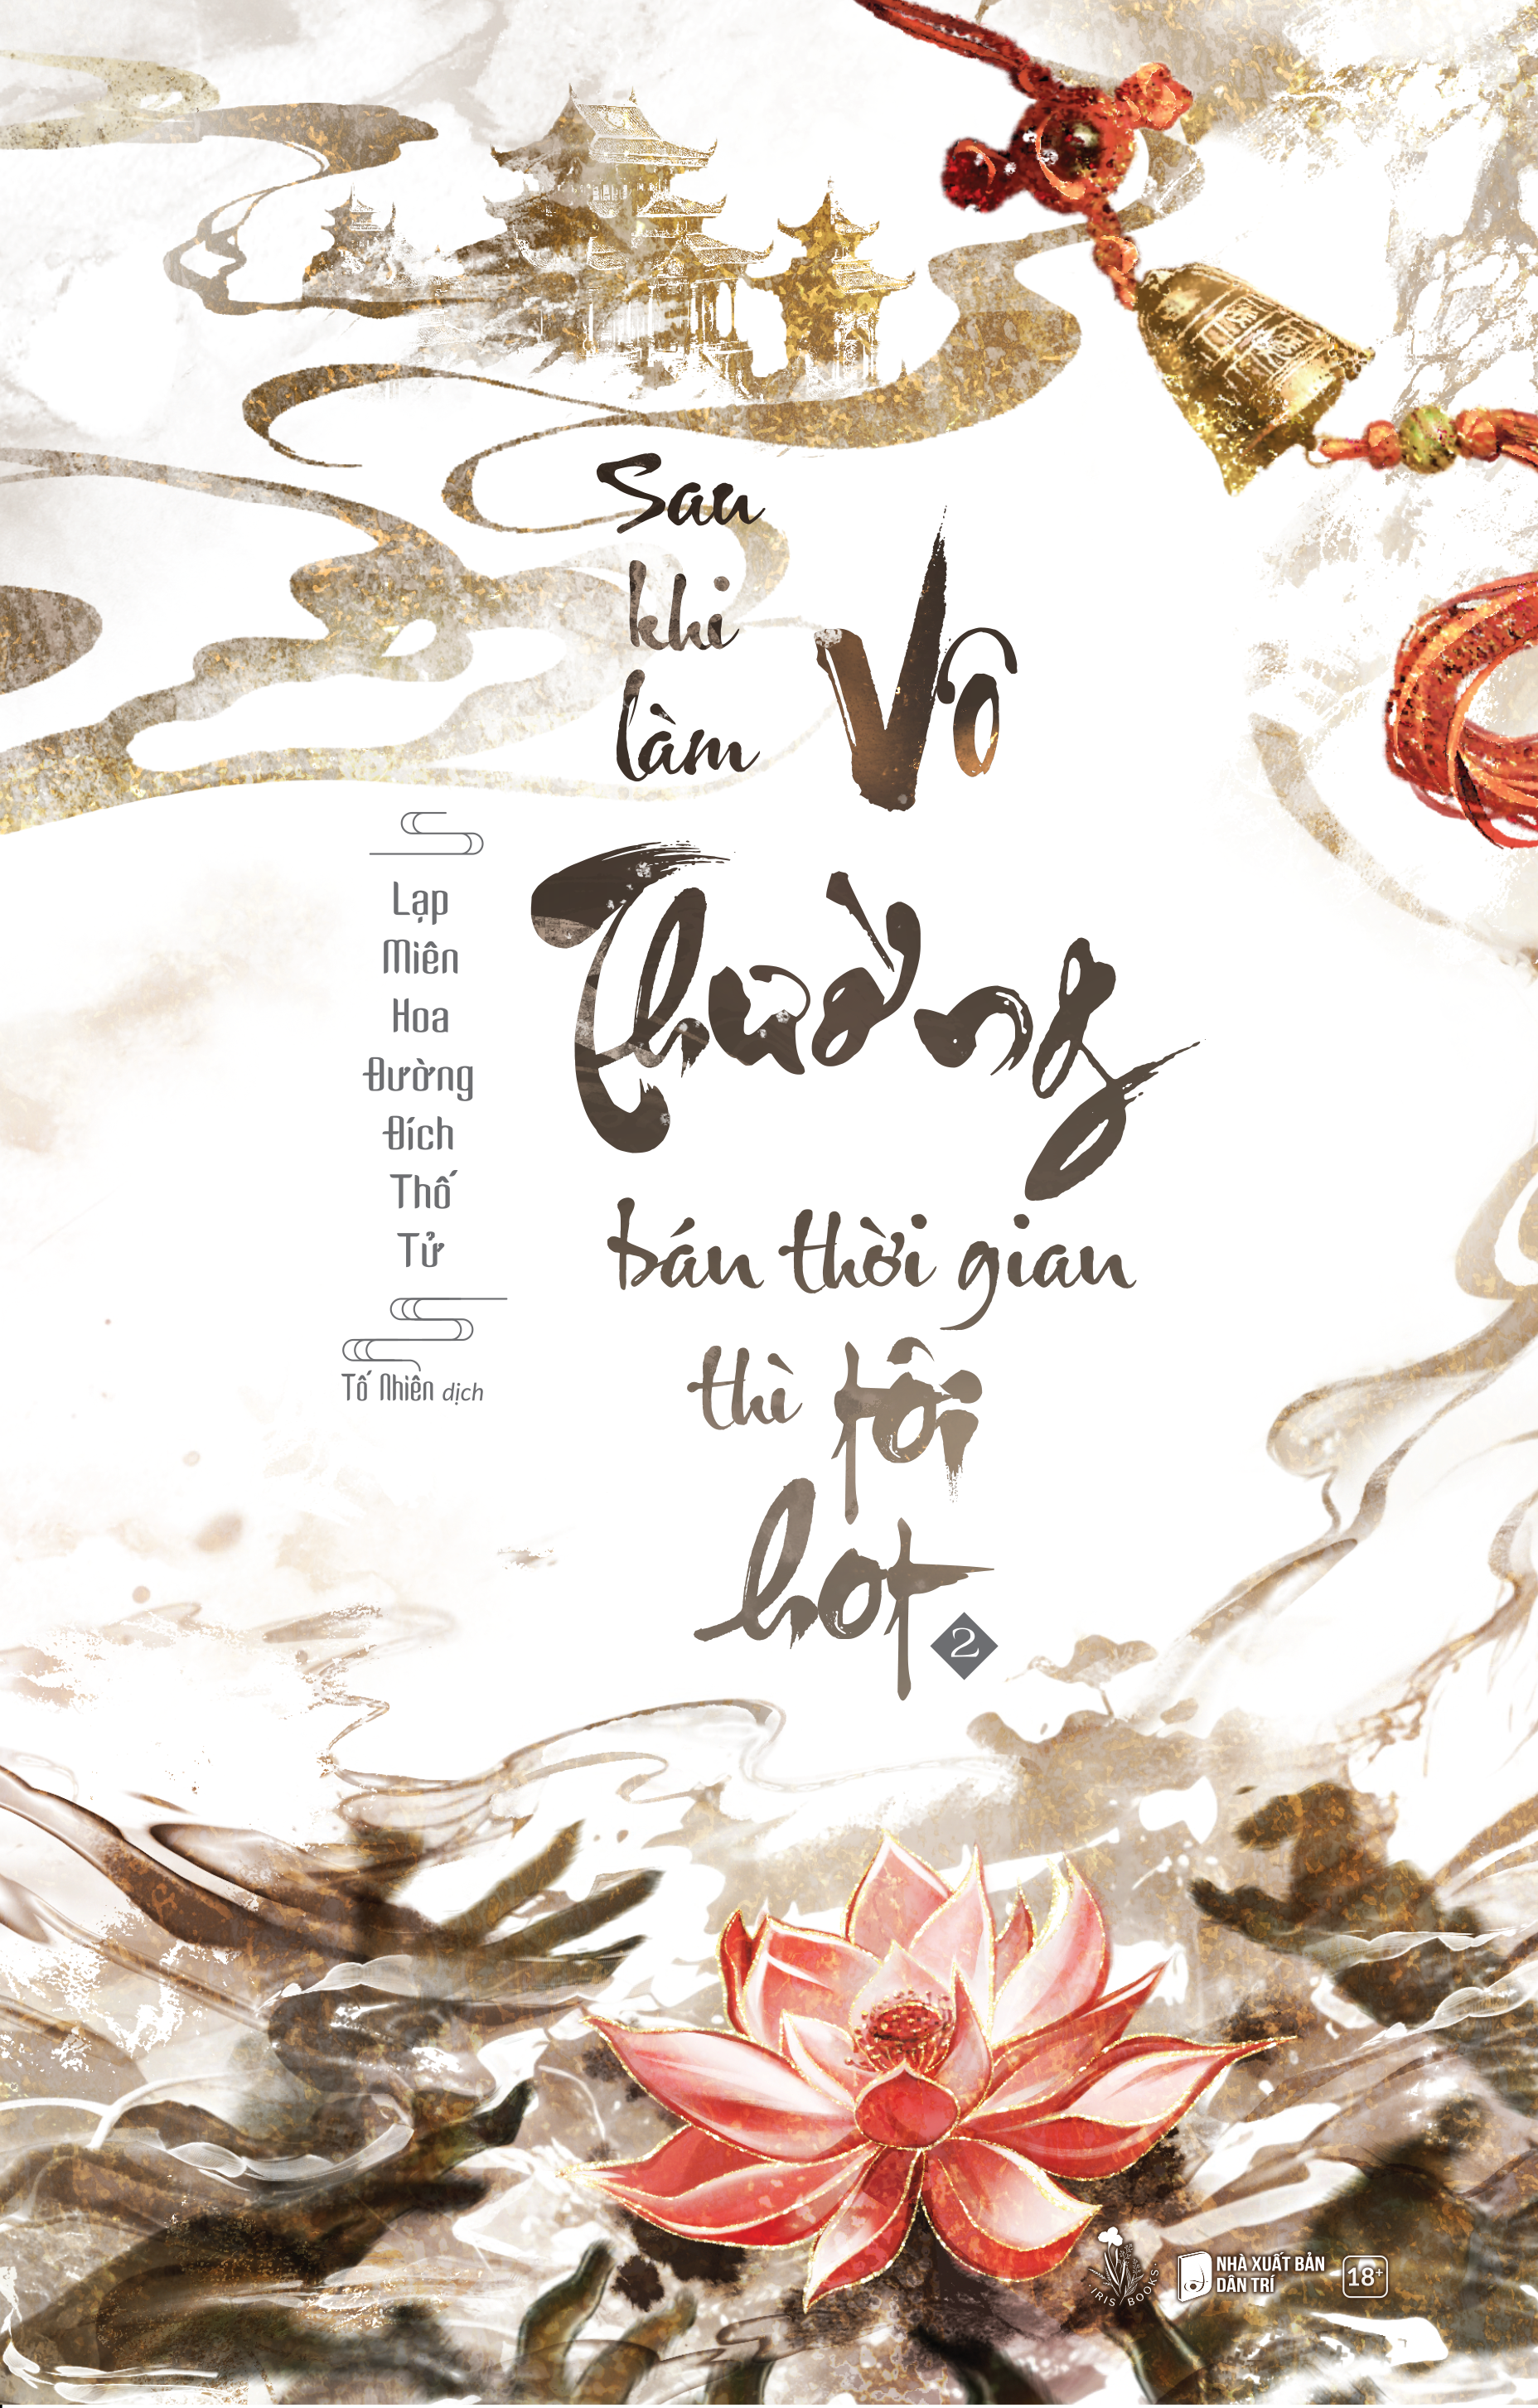 Sau
khi
làm
Vô
Thường
bán thời gian
thì tôi
hot
2
Lạp
Miên
Hoa
Đường
Đích
Thố
Tử
Tố Nhiên dịch
IRIS BOOKS
NHÀ XUẤT BẢN
DÂN TRÍ
18+